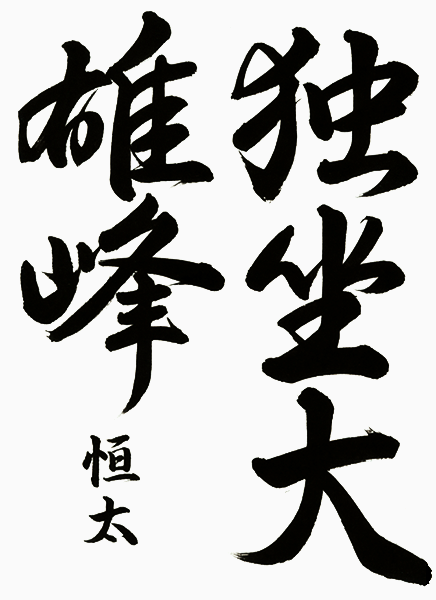 独坐大
雄峰
恒太